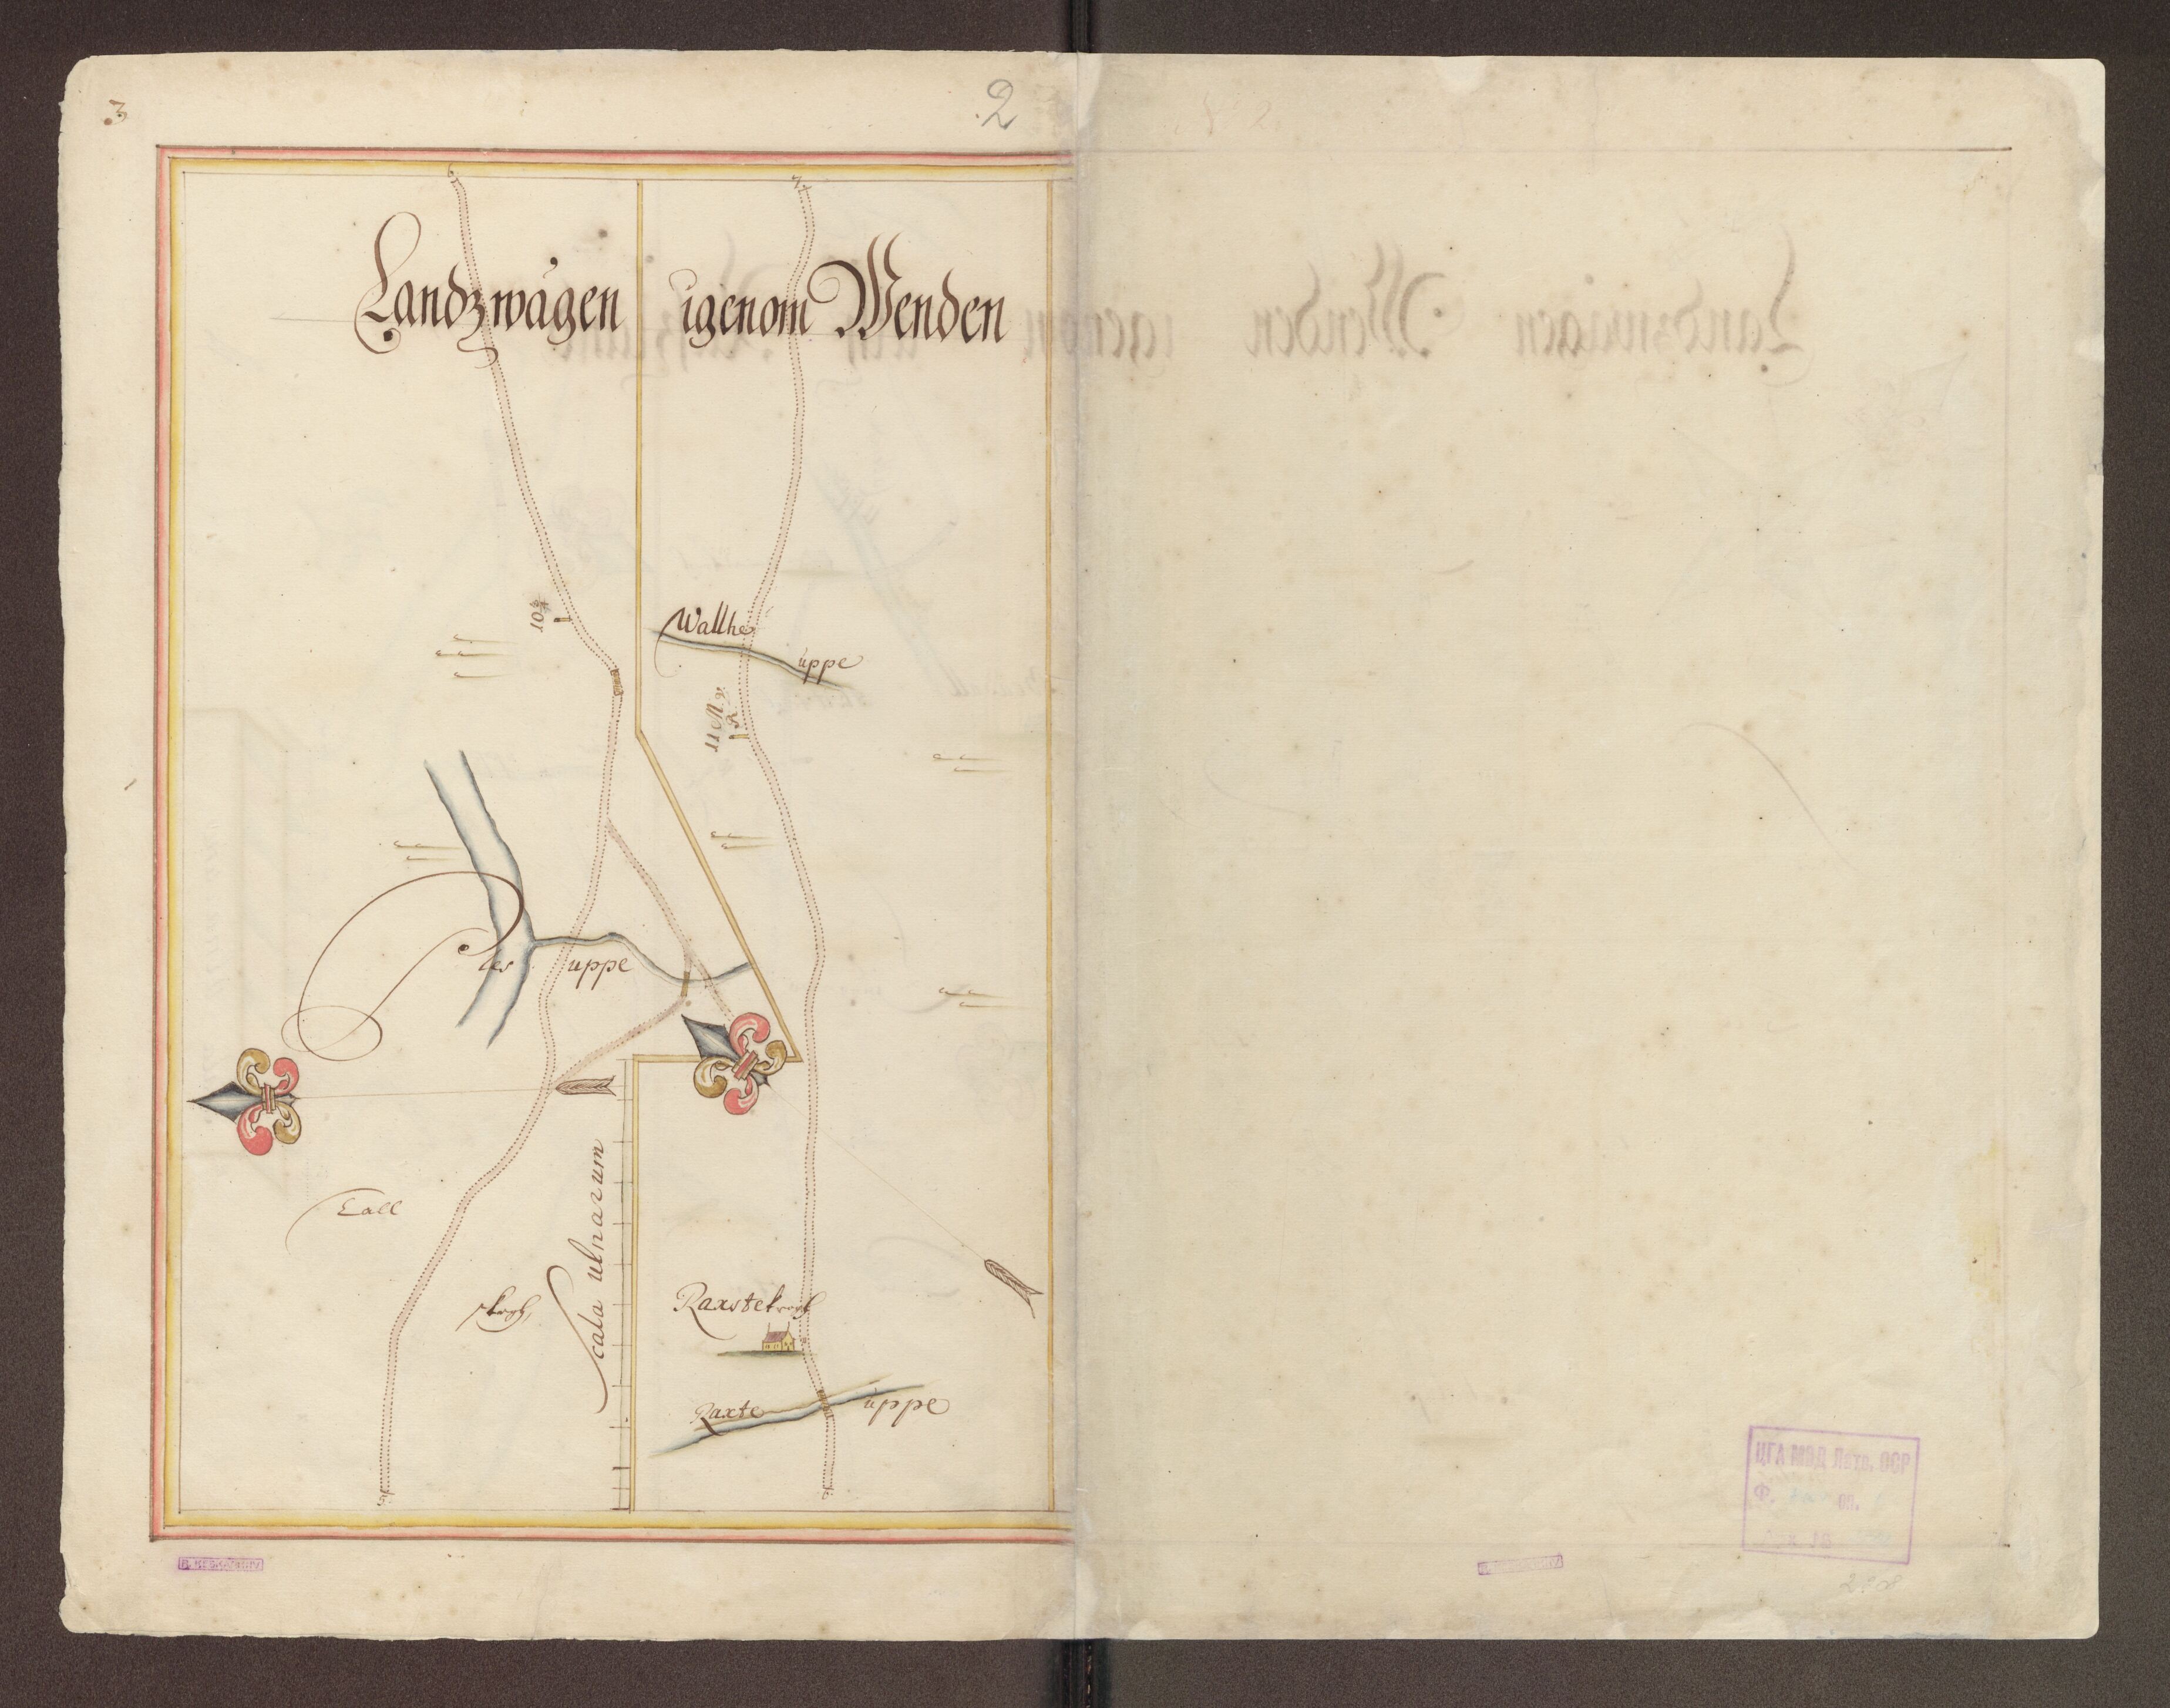 3
2
Landzwägen igenom Wenden
10¾
Wallhe
uppe
11 M
uppe
Call
Scala ulnarum
Raxstekrogh
Raxte uppe
ЦГА МВД Латв. ССР
Ф. оп.